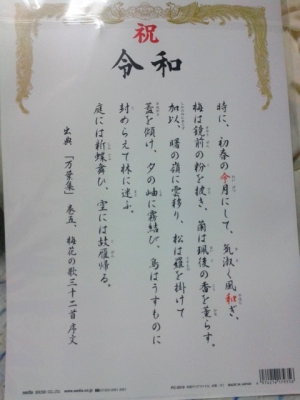 祝
令和
時に、初春の令月にして、気淑く風和ぎ、
梅は鏡前の粉を披き、蘭は珮後の香を薫らす。
加以、曙の嶺に雲移り、松は羅を掛けて
蓋を傾け、夕の岫に霧結び、鳥はうすものに
封めらえて林に迷ふ。
庭には新蝶舞ひ、空には故雁帰る。
出典「万葉集」巻五、梅花の歌三十二首序文